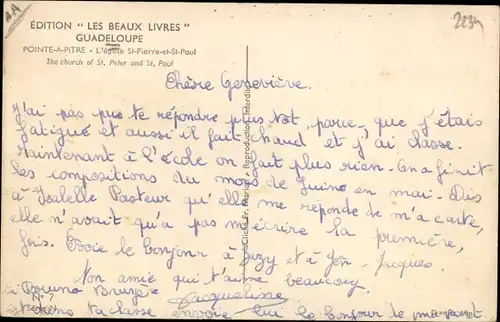 ÉDITION "LES BEAUX LIVRES"
GUADELOUPE
2234
POINTE-A-PITRE - L'église St-Pierre-et-St-Paul
The church of St. Peter and St. Paul
Chère Geneviève.
J'ai pas pu te répondre plus tôt, parce que j'étais
fatigué et aussi il fait chaud et j'ai classe.
Maintenant à l'école on fait plus rien. On a finit
les compositions du mois de Juin en mai. Dis
à Isabelle Pasteur qu'elle me réponde de m'a carte,
elle n'avait qu'a pas m'écrire la première,
fois. Envoie le bonjour à Suzy et à Jean-Jacques.
Ton amie qui t'aime beaucoup
Jacqueline
N° 7
si Bruno
est dans ta classe envoie lui le bonjour de ma part
Reproduction Interdite